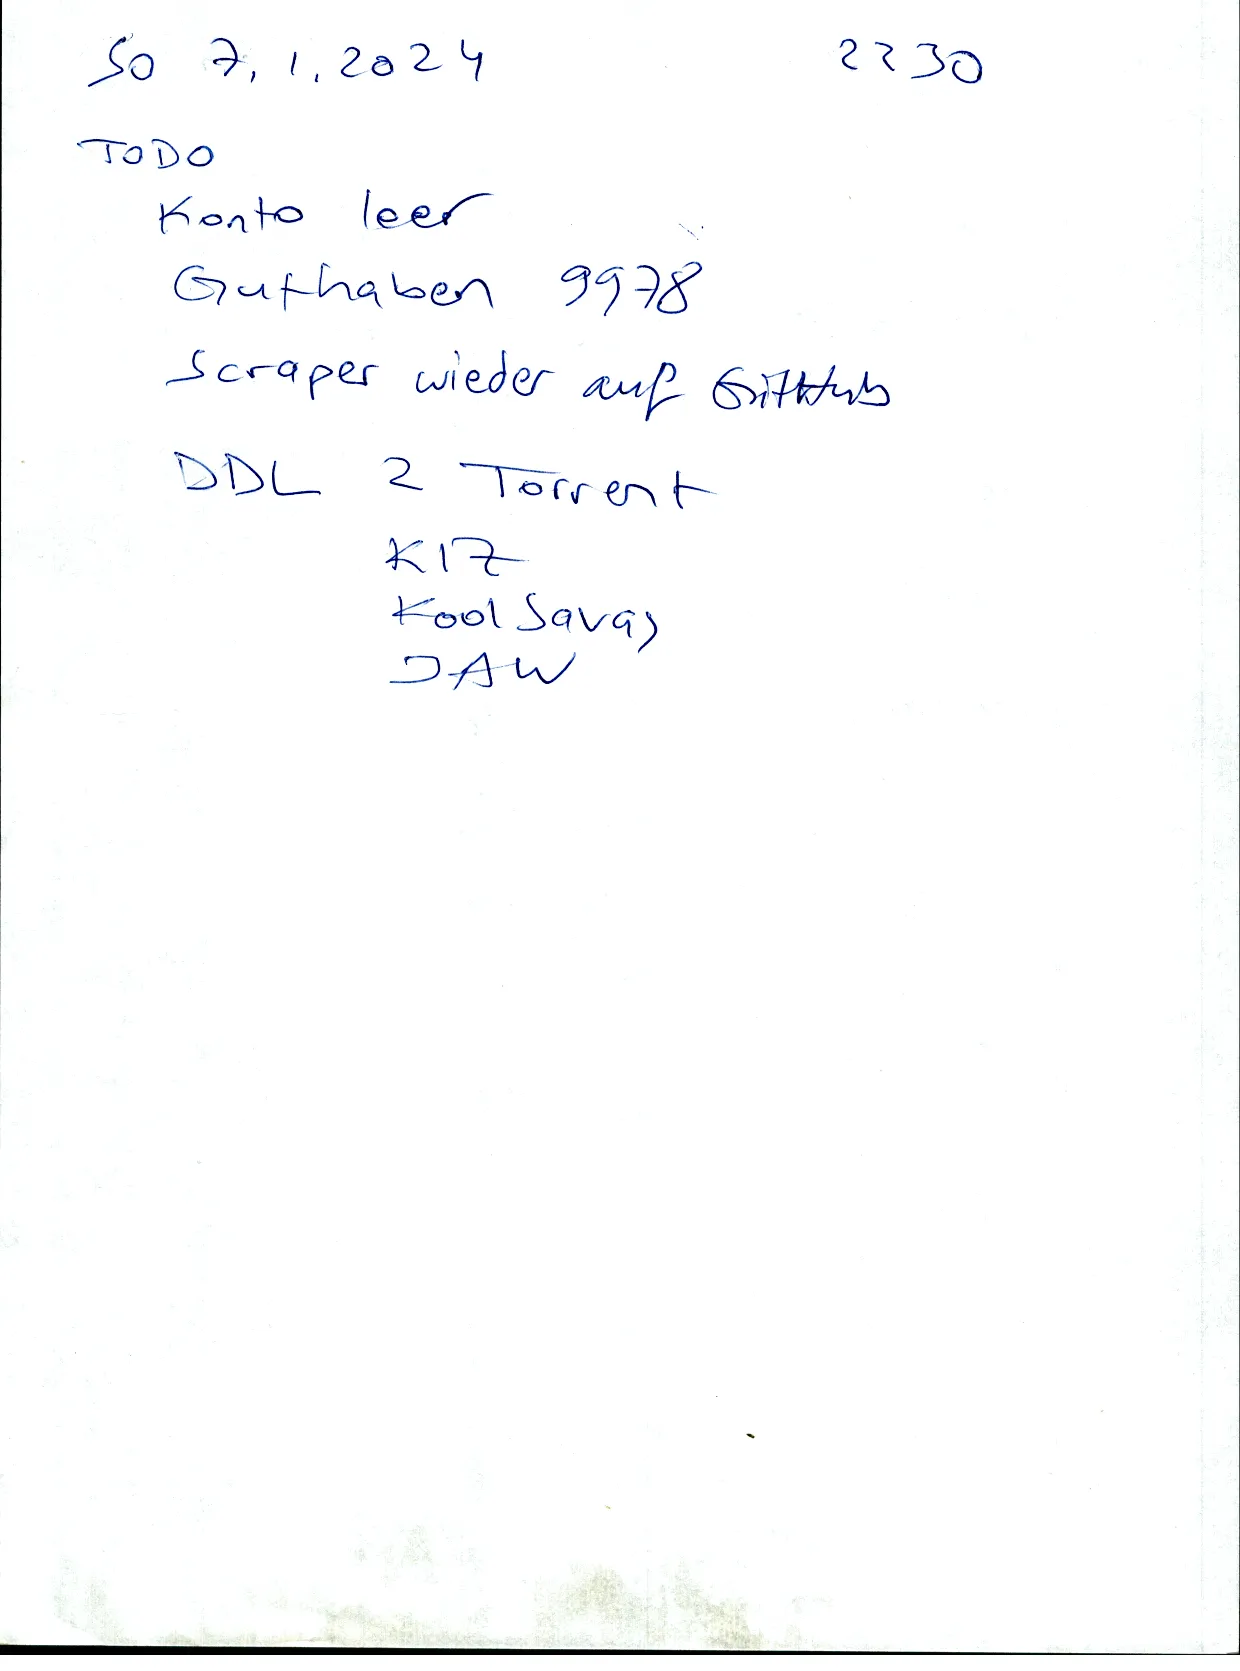 So 7.1.2024 2230
TODO
Konto leer
Guthaben 9978
Scraper wieder auf GitHub
DDL 2 Torrent
KIZ
Kool Savas
JAW